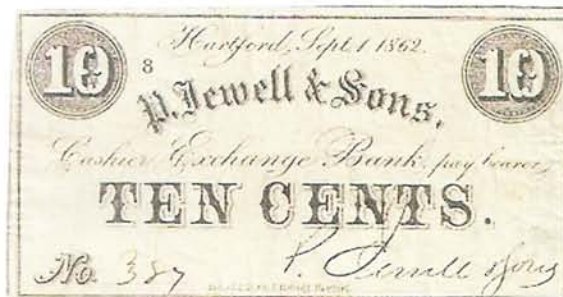 Hartford, Sept. 1 1862.
10 8 10
P. Jewell & Sons,
Cashier Exchange Bank, pay bearer,
TEN CENTS.
No. 387 P. Jewell & Sons